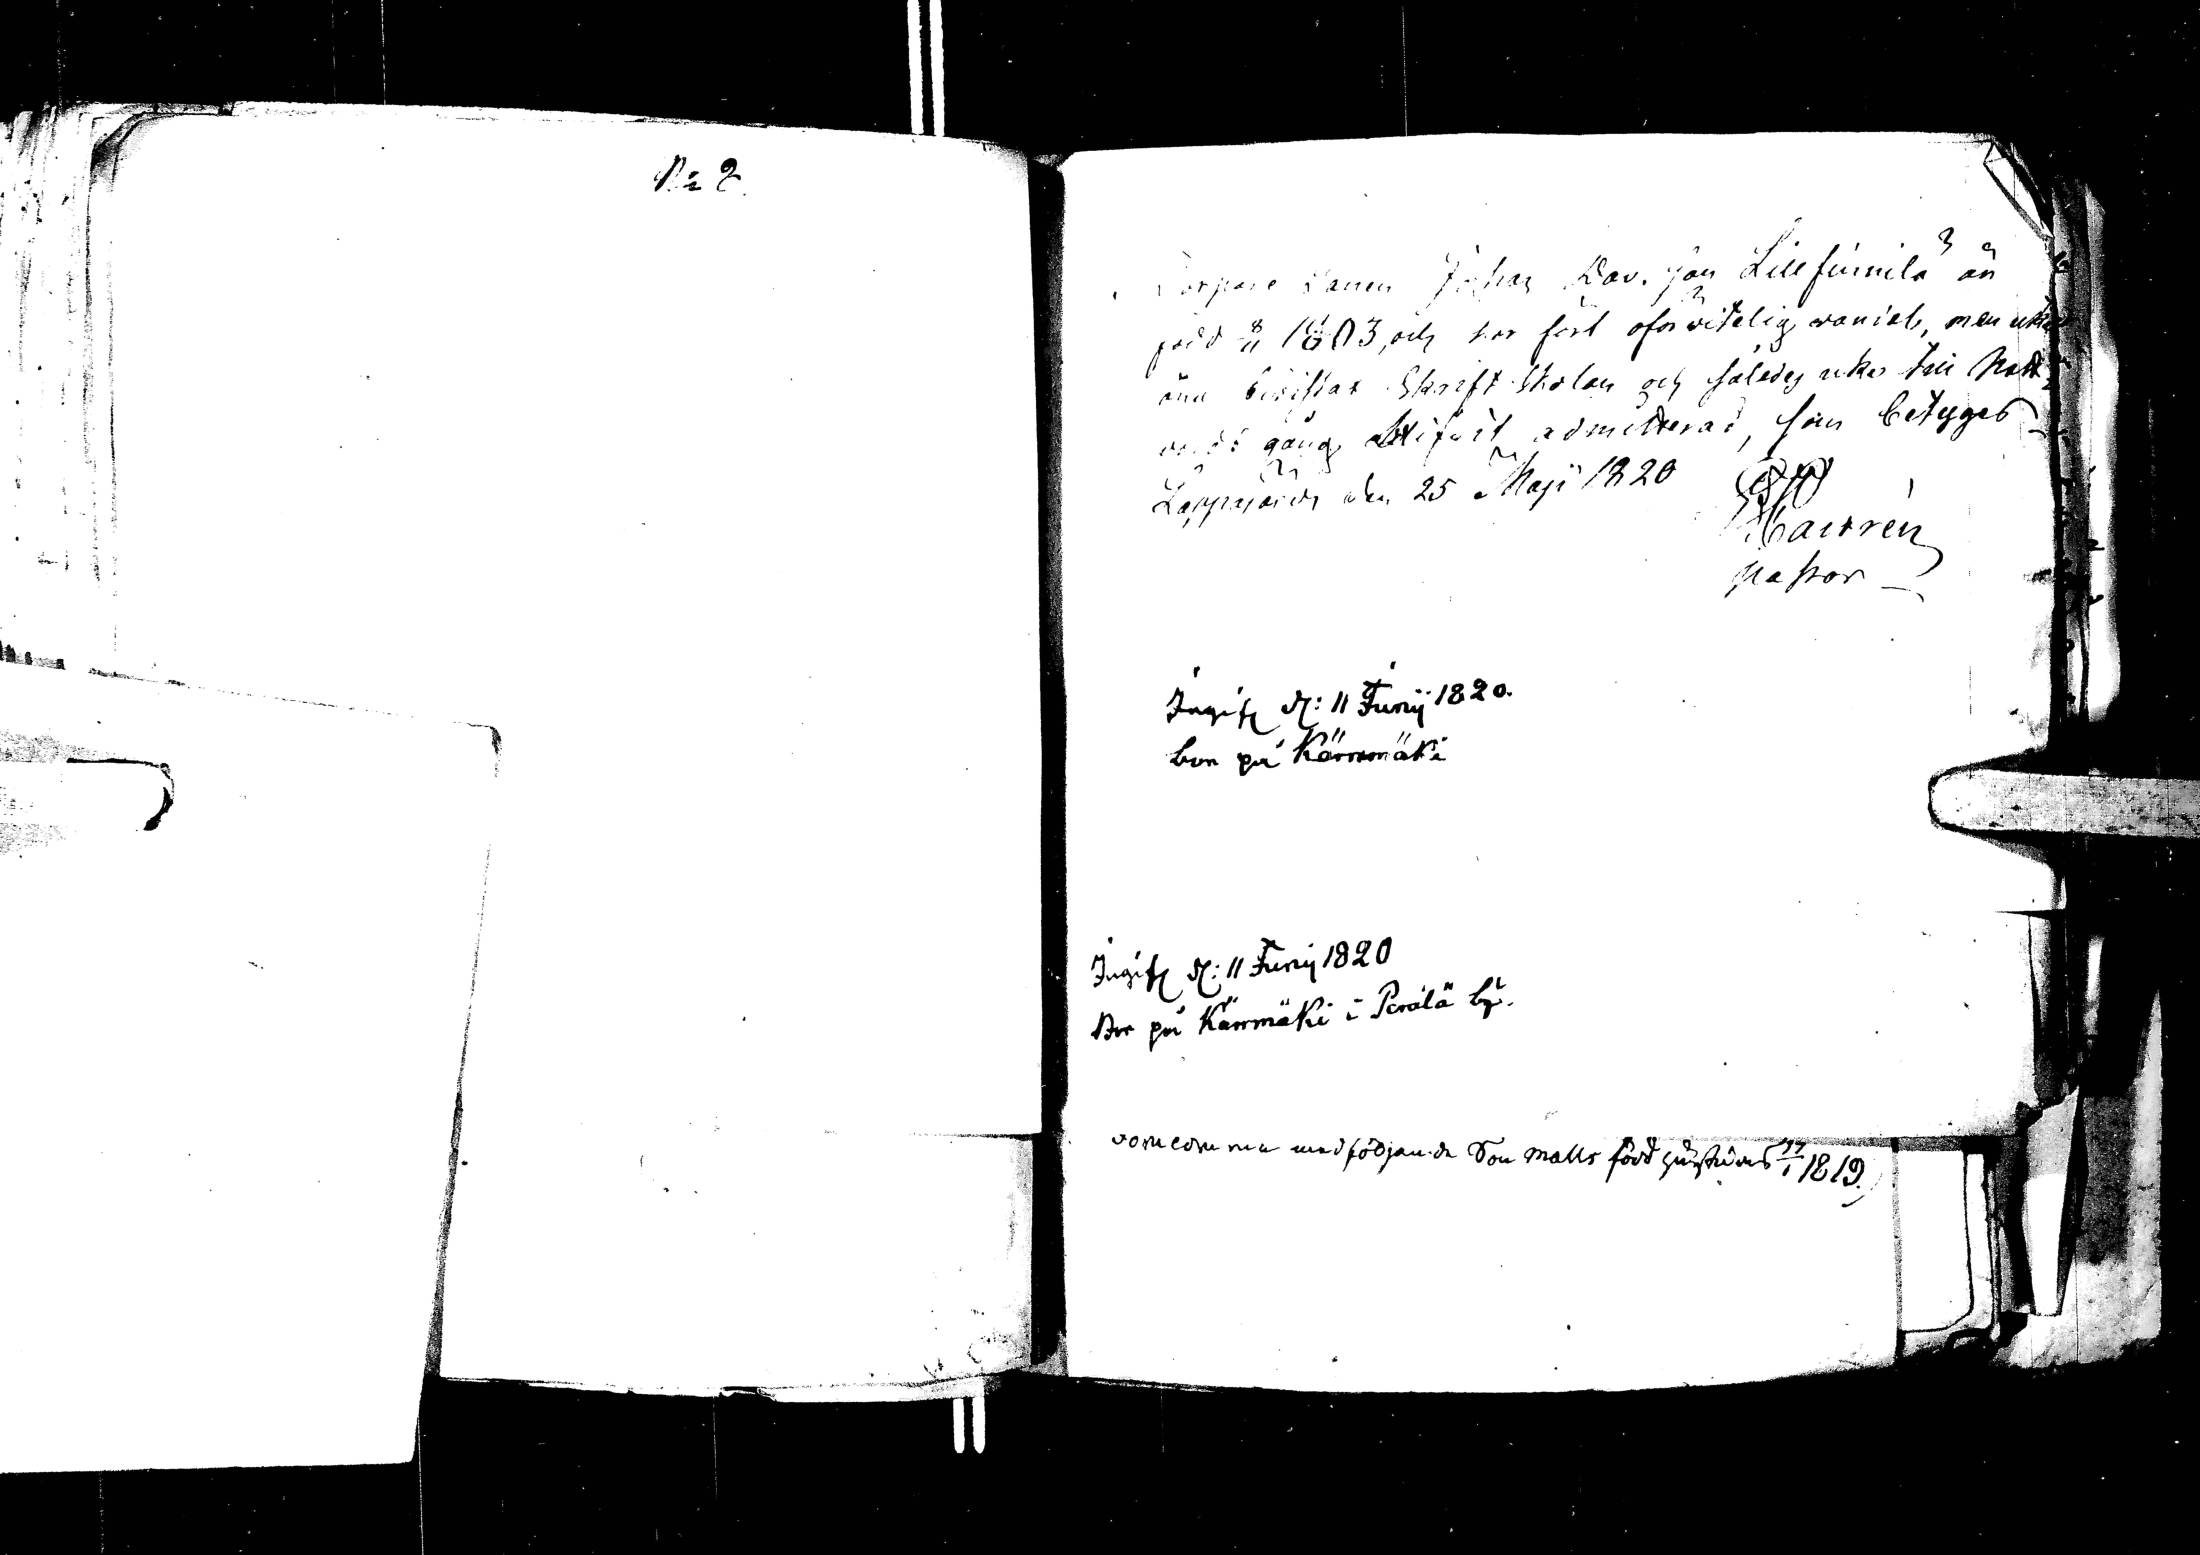 No 2.
Torpare Sonen Johan Dav. son Lillfinnilä är
född 8/11 1803, och har fört oförvitelig vandel, men icke
änn bevistat Skrift Skolan och således icke till Natt
vards gång blifvit admitterad, som betygas
Lappajärvi den 25 Maji 1820
Pastor
Ingift d: 11 Junij 1820.
bor på Kärrmäki
Ingift d: 11 Junij 1820
Bor på Kärrmäki i Perälä by.
med följande Son Matts född 1819.